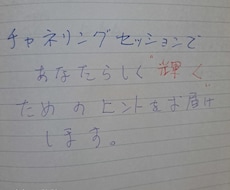 チャネリングセッションで
あなたらしく輝く
ためのヒントをお届け
します。